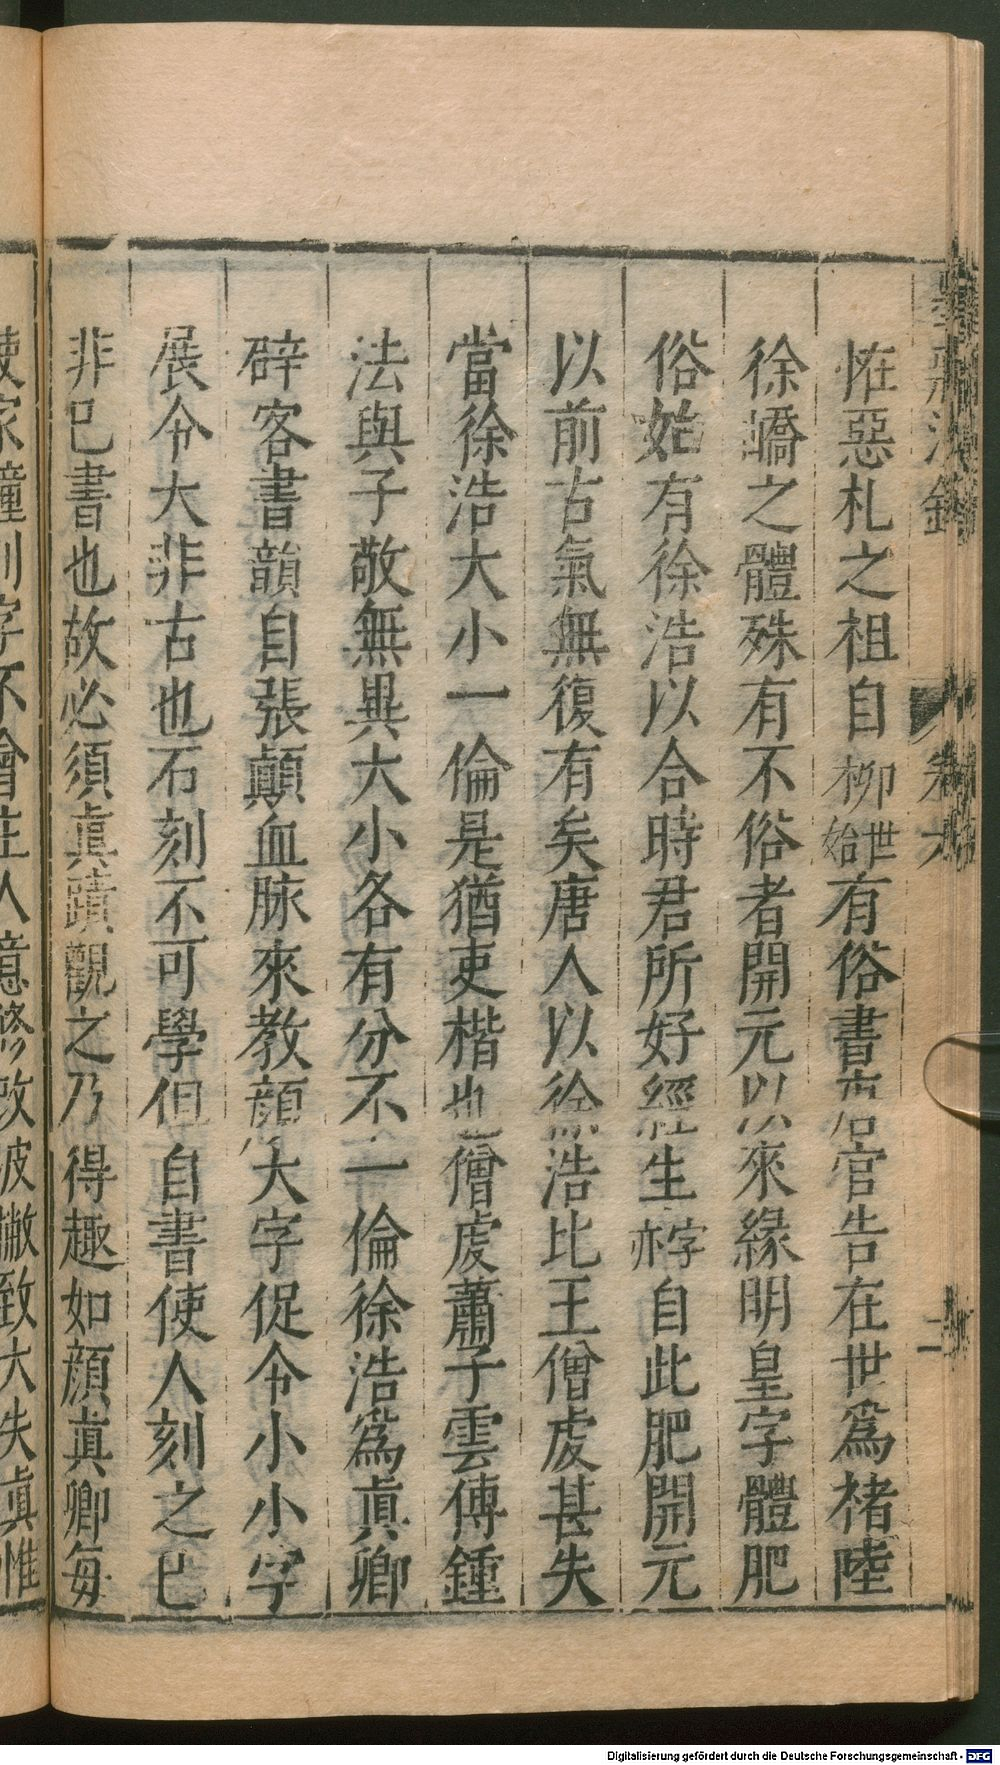 恠惡札之祖自柳世始有俗書唐官告在世爲褚陸
徐嶠之體殊有不俗者開元以來緣明皇字體肥
俗始有徐浩以合時君所好經生字亦自此肥開元
以前古氣無復有矣唐人以徐浩比王僧虔甚失
當徐浩大小一倫是猶吏楷也僧虔蕭子雲傳鍾
法與子敬無異大小各有分不一倫徐浩爲眞卿
辟客書韻自張顛血脉來教顏大字促令小小字
展令大非古也石刻不可學但自書使人刻之已
非已書也故必須眞蹟觀之乃得趣如顔眞卿每
使家僮刻字不會主人意修改波撇致大失眞惟
卷六
二
Digitalisierung gefördert durch die Deutsche Forschungsgemeinschaft - DFG